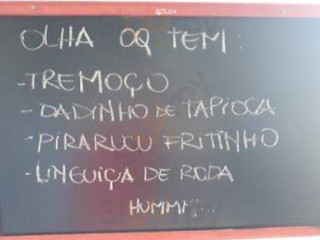 OLHA OQ TEM:
-TREMOÇO
-DADINHO DE TAPIOCA
-PIRARUCU FRITINHO
-LINGUIÇA DE RODA
HUMMM...